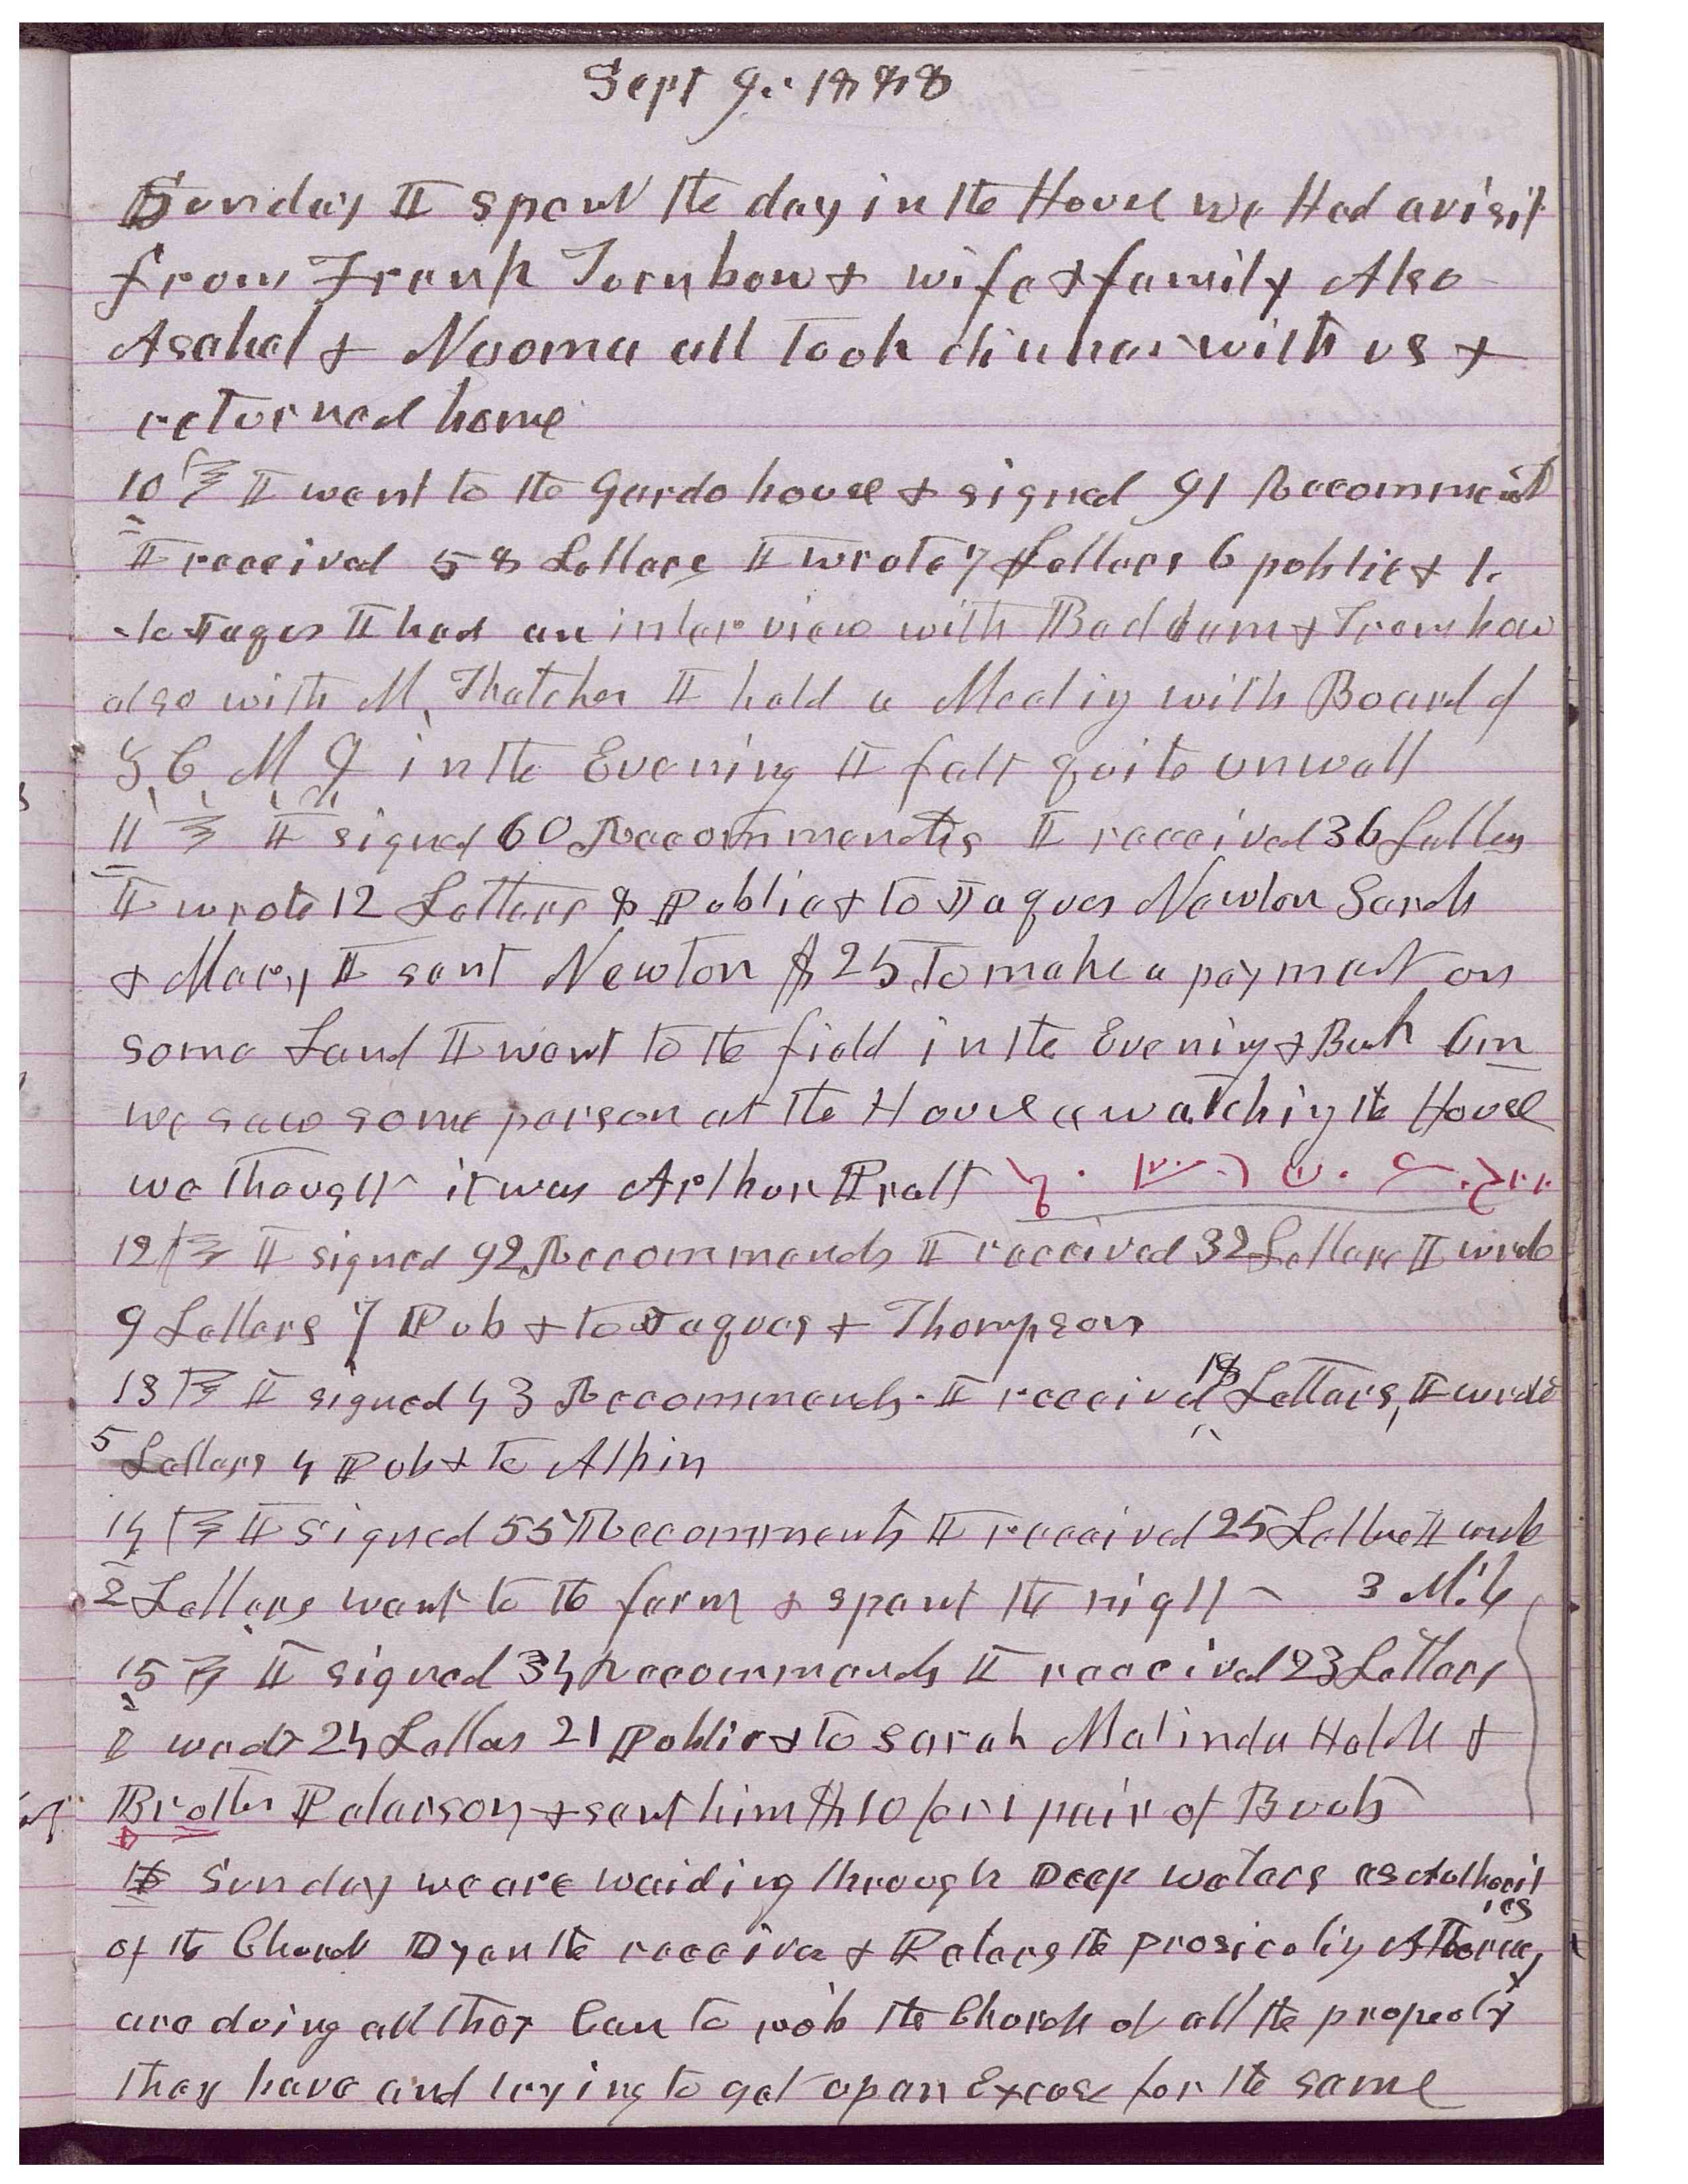 Sept 9: 1888
Sunday I spent the day in the House we Had a visit
from Frank Turnbow & wife & family Also
Asahel & Naoma all took dinner with us &
returned home
10 I went to the Gardo house & signed 91 Recommend
I received 58 Letters I wrote 7 Letters 6 public & 1
to Jaques I had an interview with &
also with M. Thatcher I held a Meetig with Board of
Z, C, M, I in the Evening I felt quite unwell
11 I signed 60 Recommends I received 36 Letters
I wrote 12 Letters 8 Public & to Jaques Newton Sarah
& Mary I sent Newton $25 To make a payment on
some Land I went to the field in the Evening & Back 6 m
we saw some person at the House a watchig the House
we thought it was Arthur Pratt
12 I signed 92 Recommends I received 32 Letters I wrote
9 Letters 7 Pub & to Jaques & Thompson
13 I signed 43 Recommends I received 18 Letters, I wrote
5 Letters 4 Pub & to Alpin
14 I signed 55 Recommends I received 25 Letters I wrote
2 Letters went to the farm & spent the night 3 M.
15 I signed 34 Recommends I received 23 Letters
I wrote 24 Letters 21 Public & to Sarah Malinda Hatch &
Brother Peterson & sent him $10 for 1 pair of Boots
16 Sunday we are waiding through Deep waters as Authorities
of the Church Dyer the receiver & Peters the prosicutig Attorney
are doing all they Can to rob the Church of all the property
they have and trying to get up an Excuse for the same